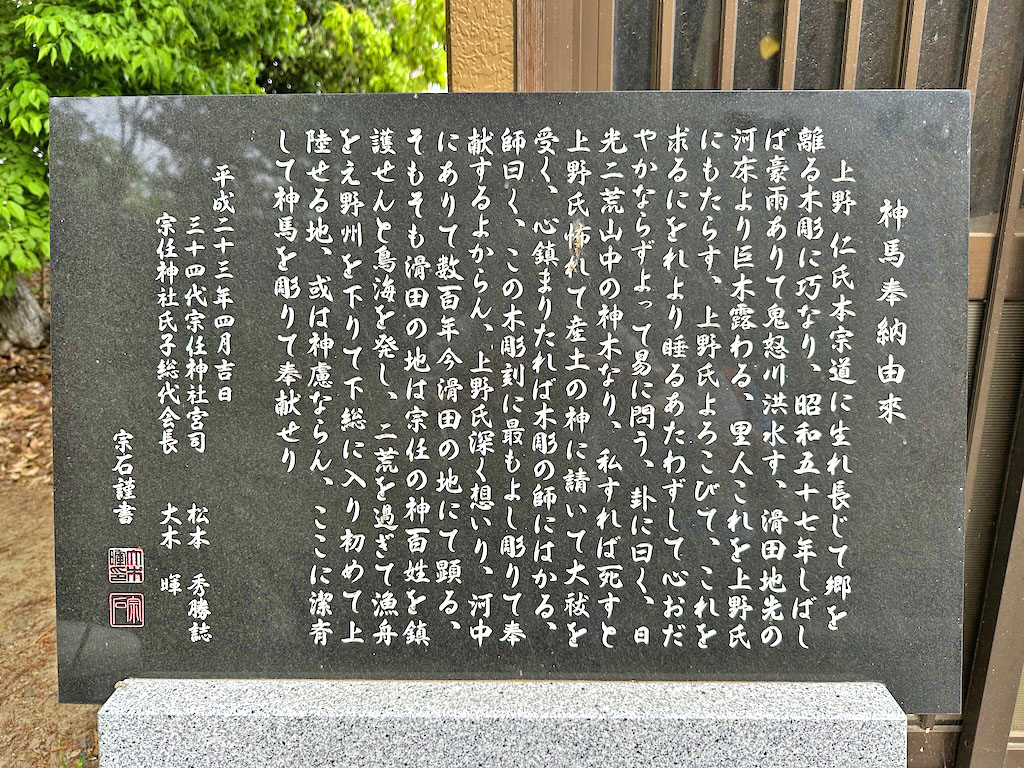 神馬奉納由來
上野 仁氏本宗道に生れ長じて郷を
離る木彫に巧なり、昭和五十七年しばし
ば豪雨ありて鬼怒川洪水す、滑田地先の
河床より巨木露わる、里人これを上野氏
にもたらす、上野氏よろこびて、これを
求るにをれより睡るあたわずして心おだ
やかならずよって易に問う、卦に曰く、日
光二荒山中の神木なり、私すれば死すと
上野氏怖れて産土の神に請いて大祓を
受く、心鎮まりたれば木彫の師にはかる、
師曰く、この木彫刻に最もよし彫りて奉
献するよからん、上野氏深く想いり、河中
にありて数百年今滑田の地にて顕る、
そもそも滑田の地は宗任の神百姓を鎮
護せんと鳥海を発し、二荒を過ぎて漁舟
をえ野州を下りて下総に入り初めて上
陸せる地、或は神慮ならん、ここに潔斉
して神馬を彫りて奉献せり
平成二十三年四月吉日
三十四代宗任神社宮司 松本 秀勝誌
宗任神社氏子総代会長 大木 暉
宗石謹書